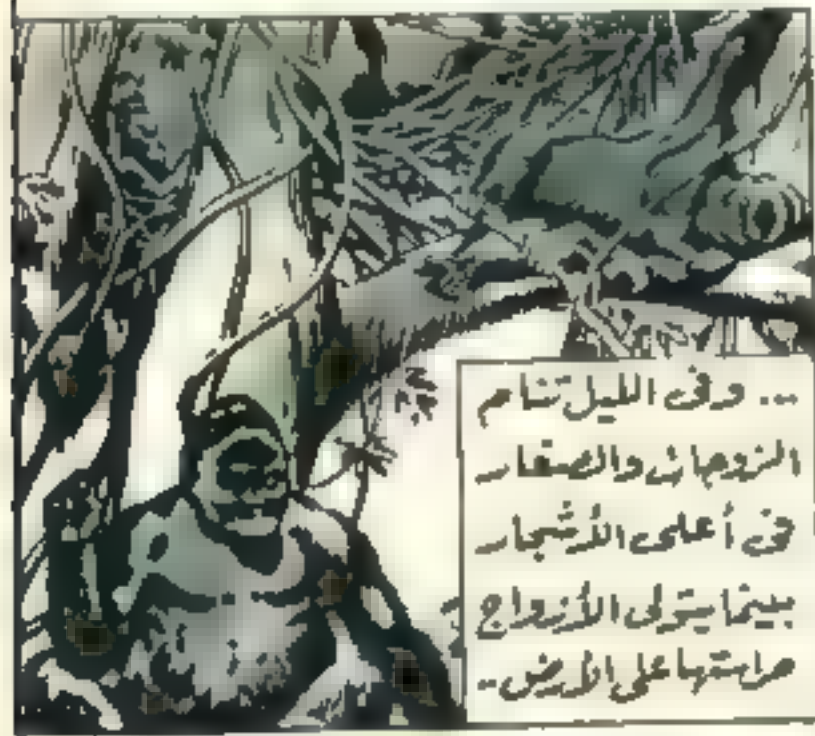 ... وفى الليل تنام
الزوجات والصغار
فى أعلى الأشجار
بينما يتولى الأزواج
حراستها على الأرض..